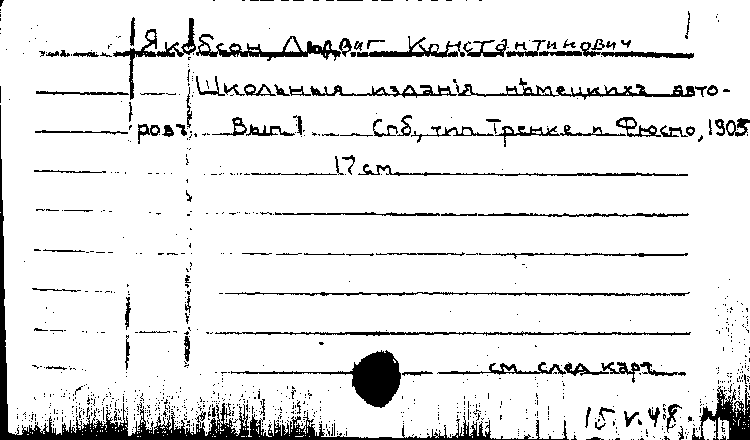 Якобсон, Людвиг Константинович
Школьныя изданія нѣмецкихъ авто-
ровъ. Вып. 1 Спб., тип. Тренке и Фюсно, 1903
17 см.
см. след. карт.
15.V.48.